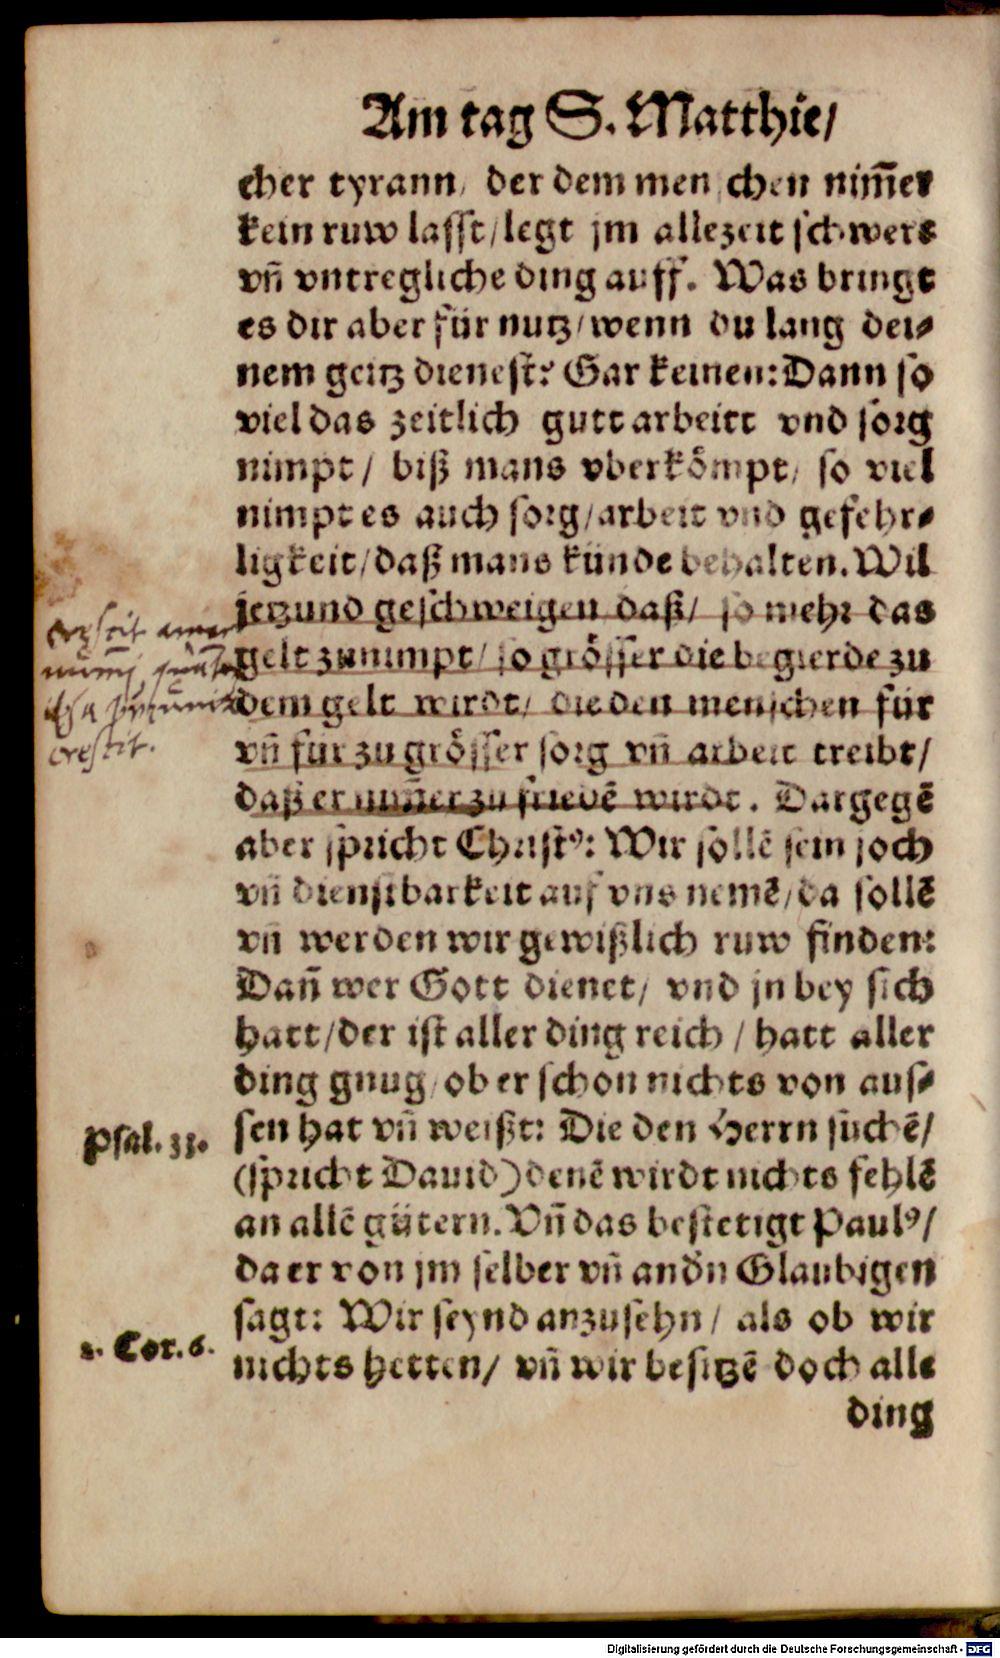 Am tag S. Matthie/
cher tyrann/ der dem menschen nim̃er
kein ruw lasst/legt jm allezeit schwere
vñ vntregliche ding auff. Was bringt
es dir aber für nutz/wenn du lang dei⸗
nem geitz dienest? Gar keinen: Dann so
viel das zeitlich gutt arbeitt vnd sorg
nimpt/ biß mans vberkömpt/ so viel
nimpt es auch sorg/arbeit vnd gefehr⸗
ligkeit/daß mans künde behalten. Wil
jetzund geschweigen daß/ so mehr das
gelt zunimpt/so grösser die begierde zu
dem gelt wirdt/ die den menschen für
vñ für zu grösser sorg vñ arbeit treibt/
daß er nim̃er zu friedẽ wirdt. Dargegẽ
aber spricht Christꝰ: Wir sollẽ sein joch
vñ dienstbarkeit auf vns nemẽ/da sollẽ
vñ werden wir gewißlich ruw finden:
Dañ wer Gott dienet/ vnd jn bey sich
hatt/der ist aller ding reich / hatt aller
ding gnug/ob er schon nichts von aus⸗
sen hat vñ weißt: Die den Herrn suchẽ/
(spricht Dauid) denẽ wirdt nichts fehlẽ
an allẽ gütern. Vñ das bestetigt Paulꝰ/
da er von jm selber vñ andn̄ Glaubigen
sagt: Wir seynd anzusehn/ als ob wir
nichts hetten/ vñ wir besitzẽ doch alle
ding
crescit amor
crescit.
Psal. 33.
2. Cor. 6.
Digitalisierung gefördert durch die Deutsche Forschungsgemeinschaft - DFG